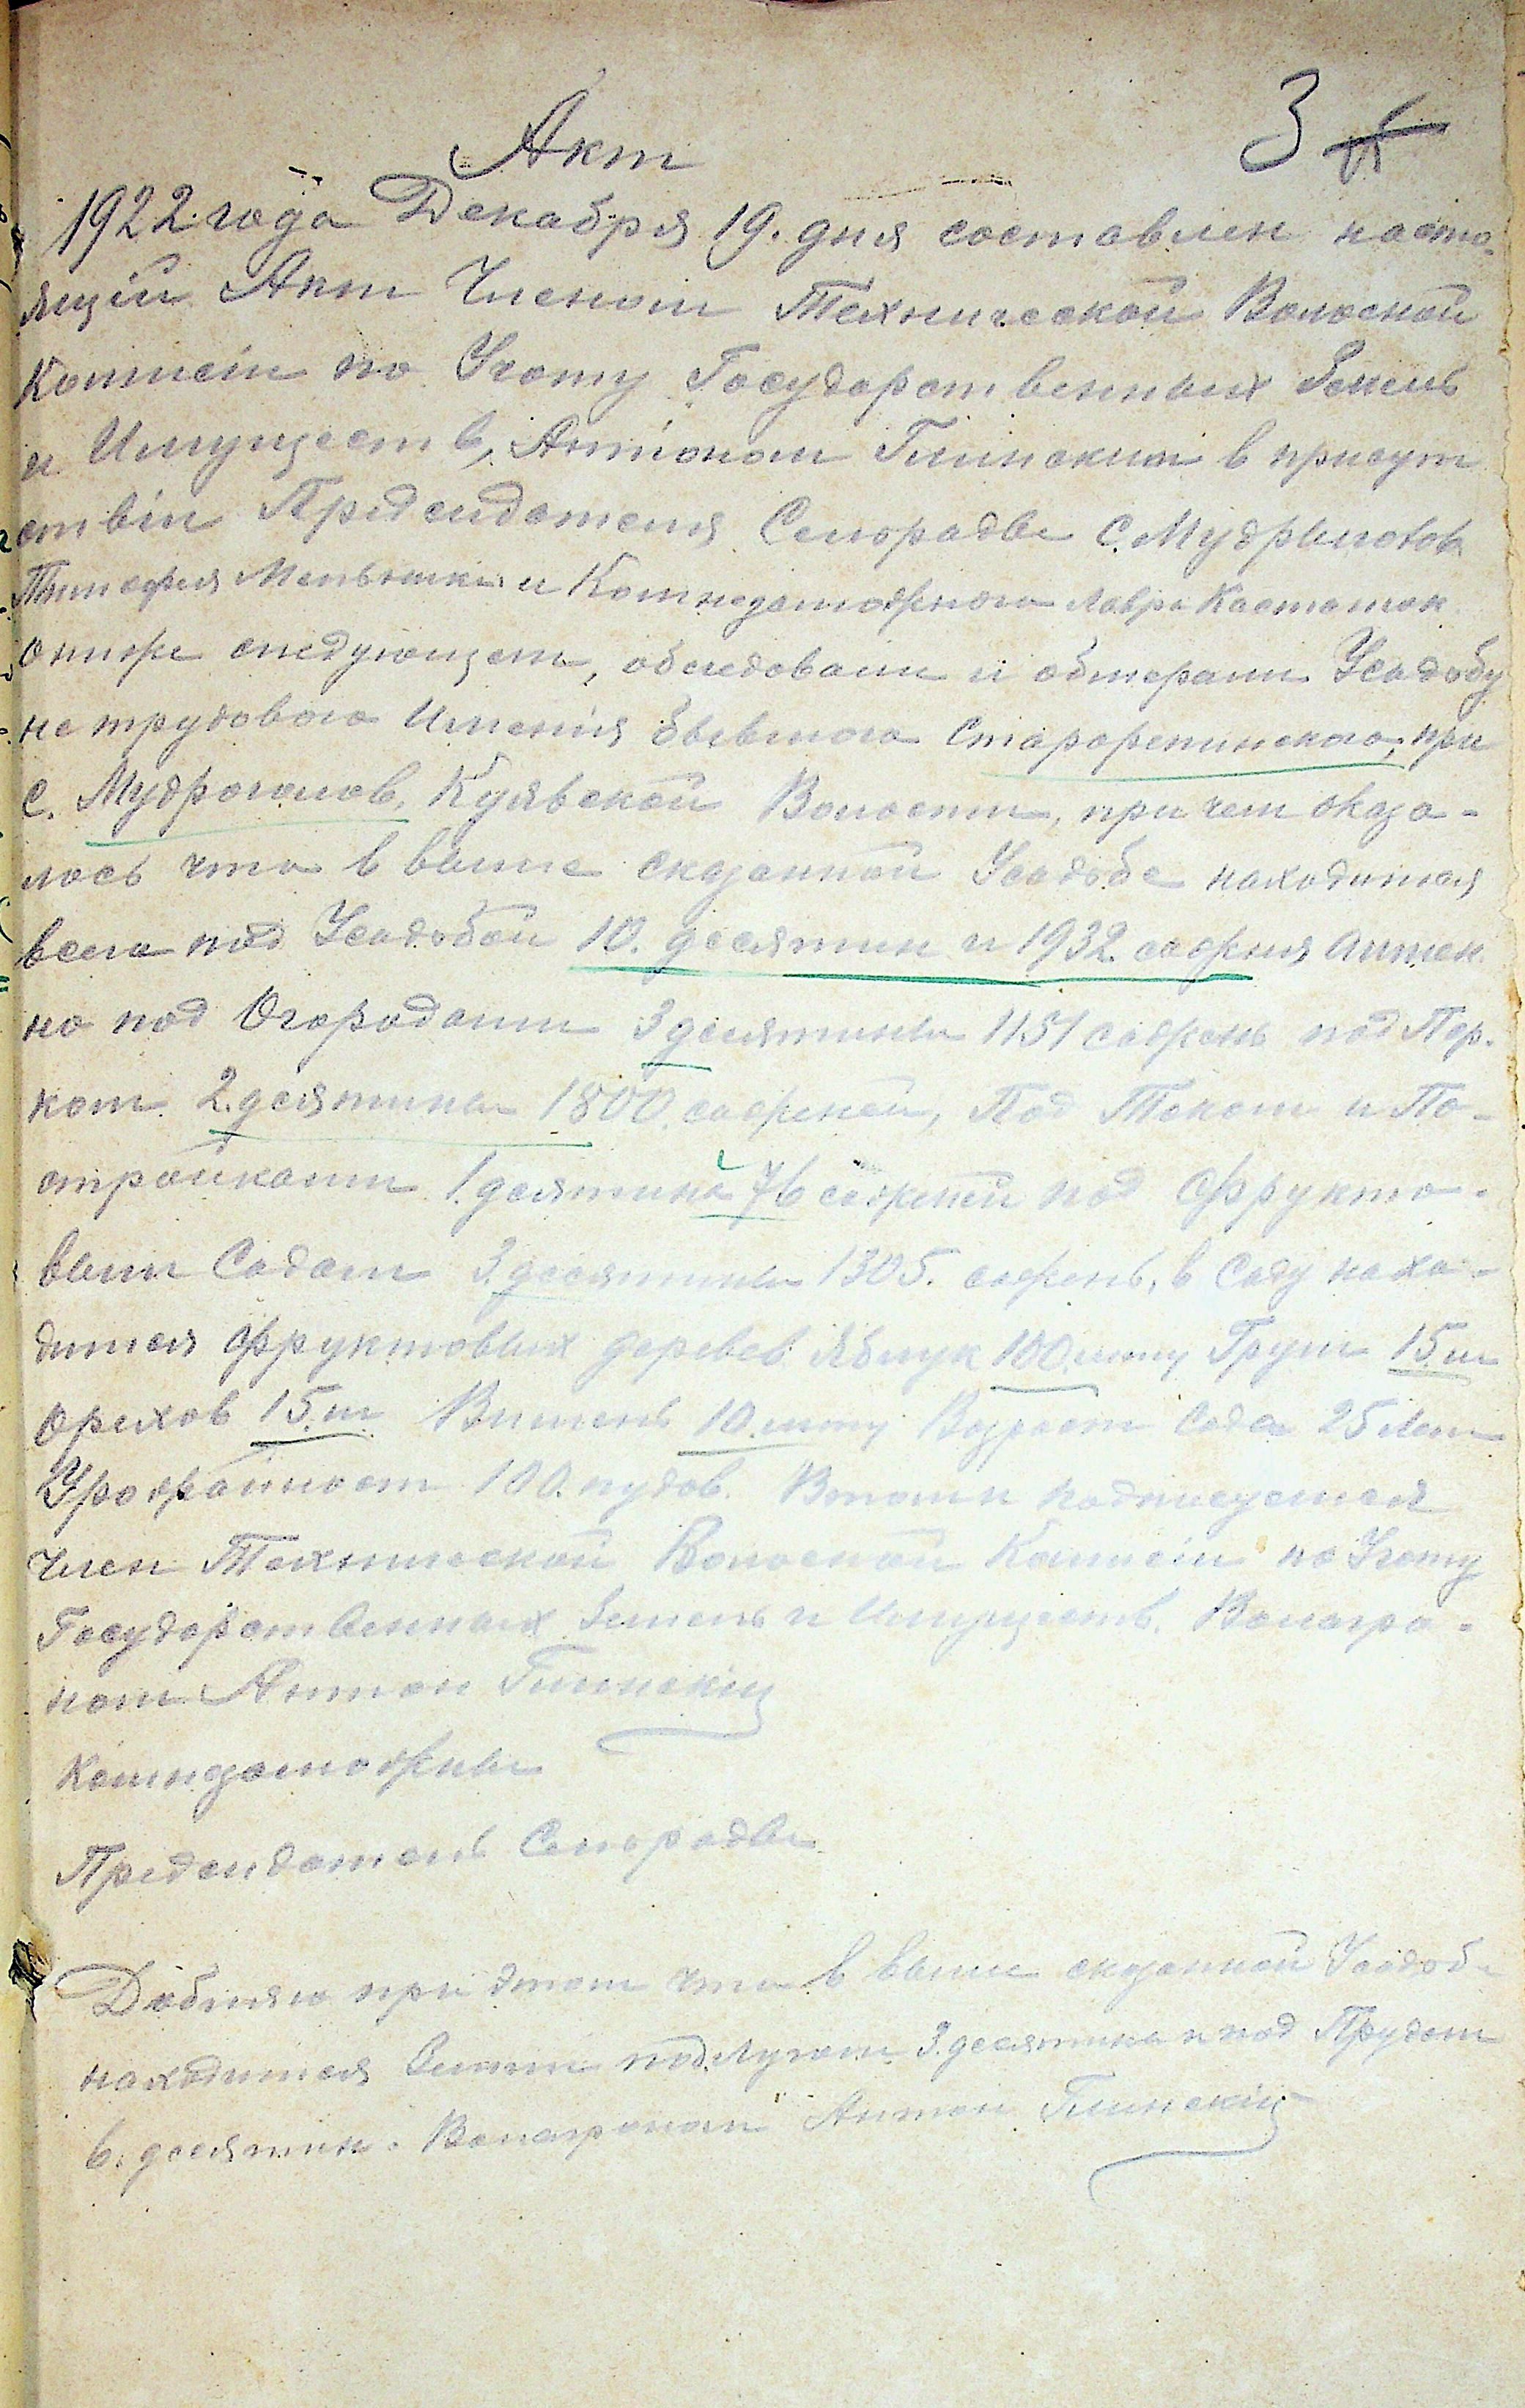 3
Акт
1922 года Декабря 19. дня составлен насто-
ящій Акт Членом Технической Волосной
Комисіи по Учоту Государственных Земель
и Имуществ, Антоном Глинским в присут
ствіи Предсидателя Селорадвы с. Мудрыголов
Тимофея и Комнезаможного Лавра
о ниже следующем, обследовали и обмерали Усадьбу
не трудового Именія бывшого Старорепинского, при
с. Мудроголов, Куявской Волости, при чем оказа-
лось что в выше сказанной Усадьбе находится
всего под Усадьбой 10. десятин и 1932. сажня Аимен.
но под Огородами 3 десятины 1151 сажень под Пар.
ком 2. десятины 1800. саженей, Под Током и По-
стройками 1. десятина 76 саженей под Фрукто-
вым Садом 3. десятины 1305. сажень, в Саду нахо-
дится Фруктовых деревев Яблук 100. шту Груш 15. ш
Орехов 15. ш Вишень 10. шту Возраст Сада 25 Лет
Урожайност 100. пудов. Втом и подписуемся
Член Технической Волосной Комисіи по Учоту
Государственных Земель и Имуществ.
Антон Глинскій
Комнезаможны
Предсидатель Селорадвы
Добавляю при этом что в выше сказанной Усадьбе
находится Земли под Лугом 3. десятины и под Прудом
6. десятин. Антон Глинскій